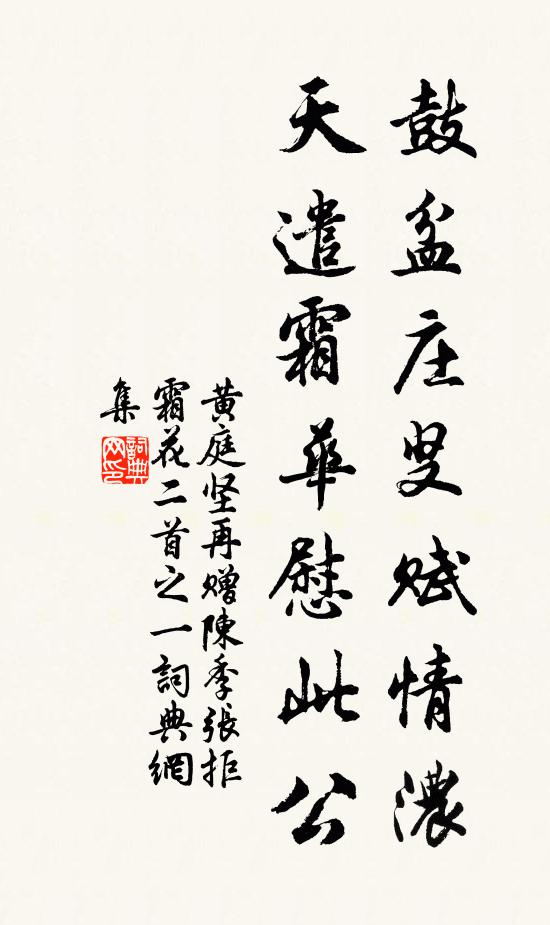 鼓盆庄叟赋情濃
天遣霜華慰此公
黄庭坚再赠陳季張拒
霜花二首之一詞典網
集
詞典
网印